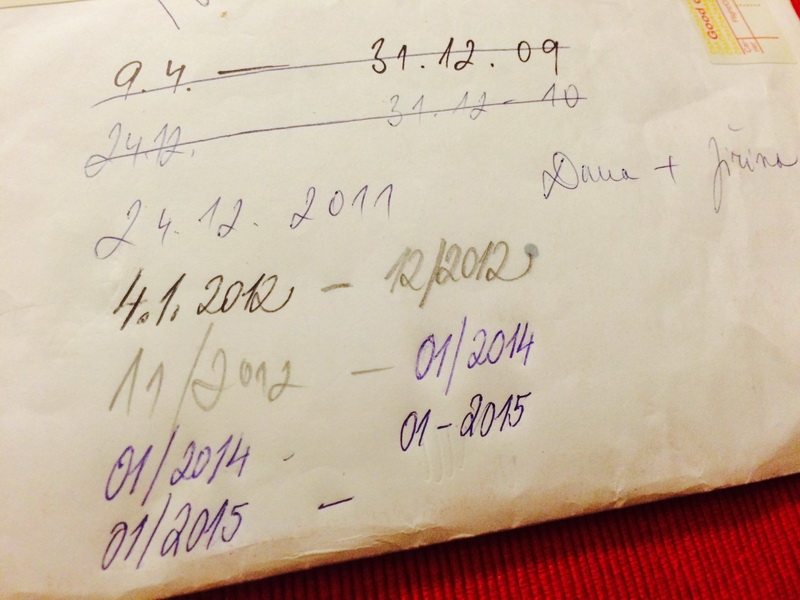 9.4. — 31.12.09
24.12. 31.12-10
Dana + Jiřina
24.12. 2011
4.1.2012 — 12/2012
11/2012 — 01/2014
01/2014 - 01-2015
01/2015 —
Good